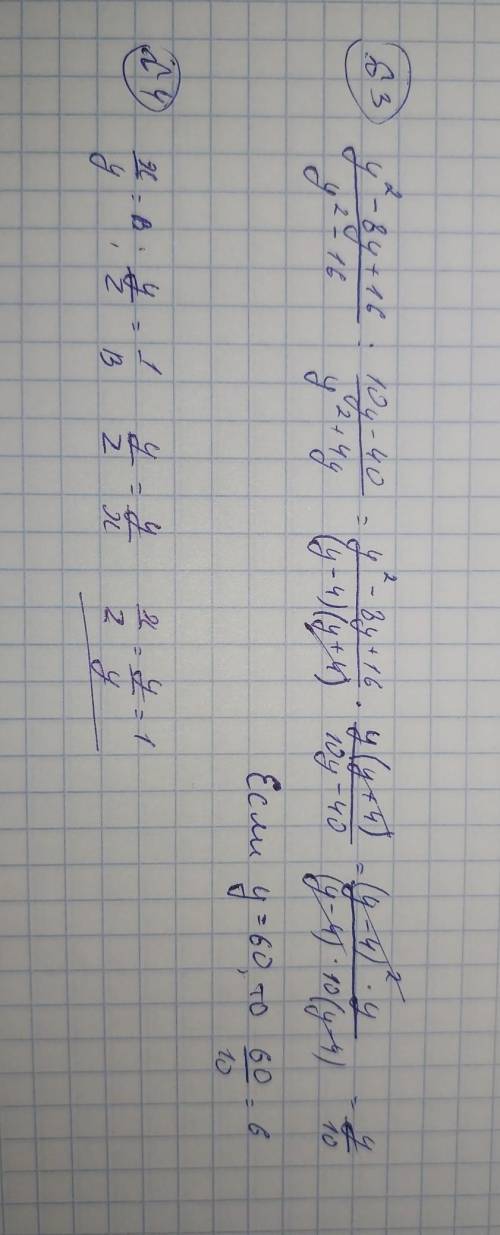 №3 (y² - 8y + 16)/(y² - 16) : (10y - 40)/(y² + 4y) = (y² - 8y + 16)/((y - 4)(y + 4)) · y(y + 4)/(10y - 40) = ((y - 4)² · y)/((y - 4) · 10(y - 4)) = y/10
Если y = 60, то 60/10 = 6
№4 x/y = в · y/z = 1/в y/z = y/x x/z = y/y = 1